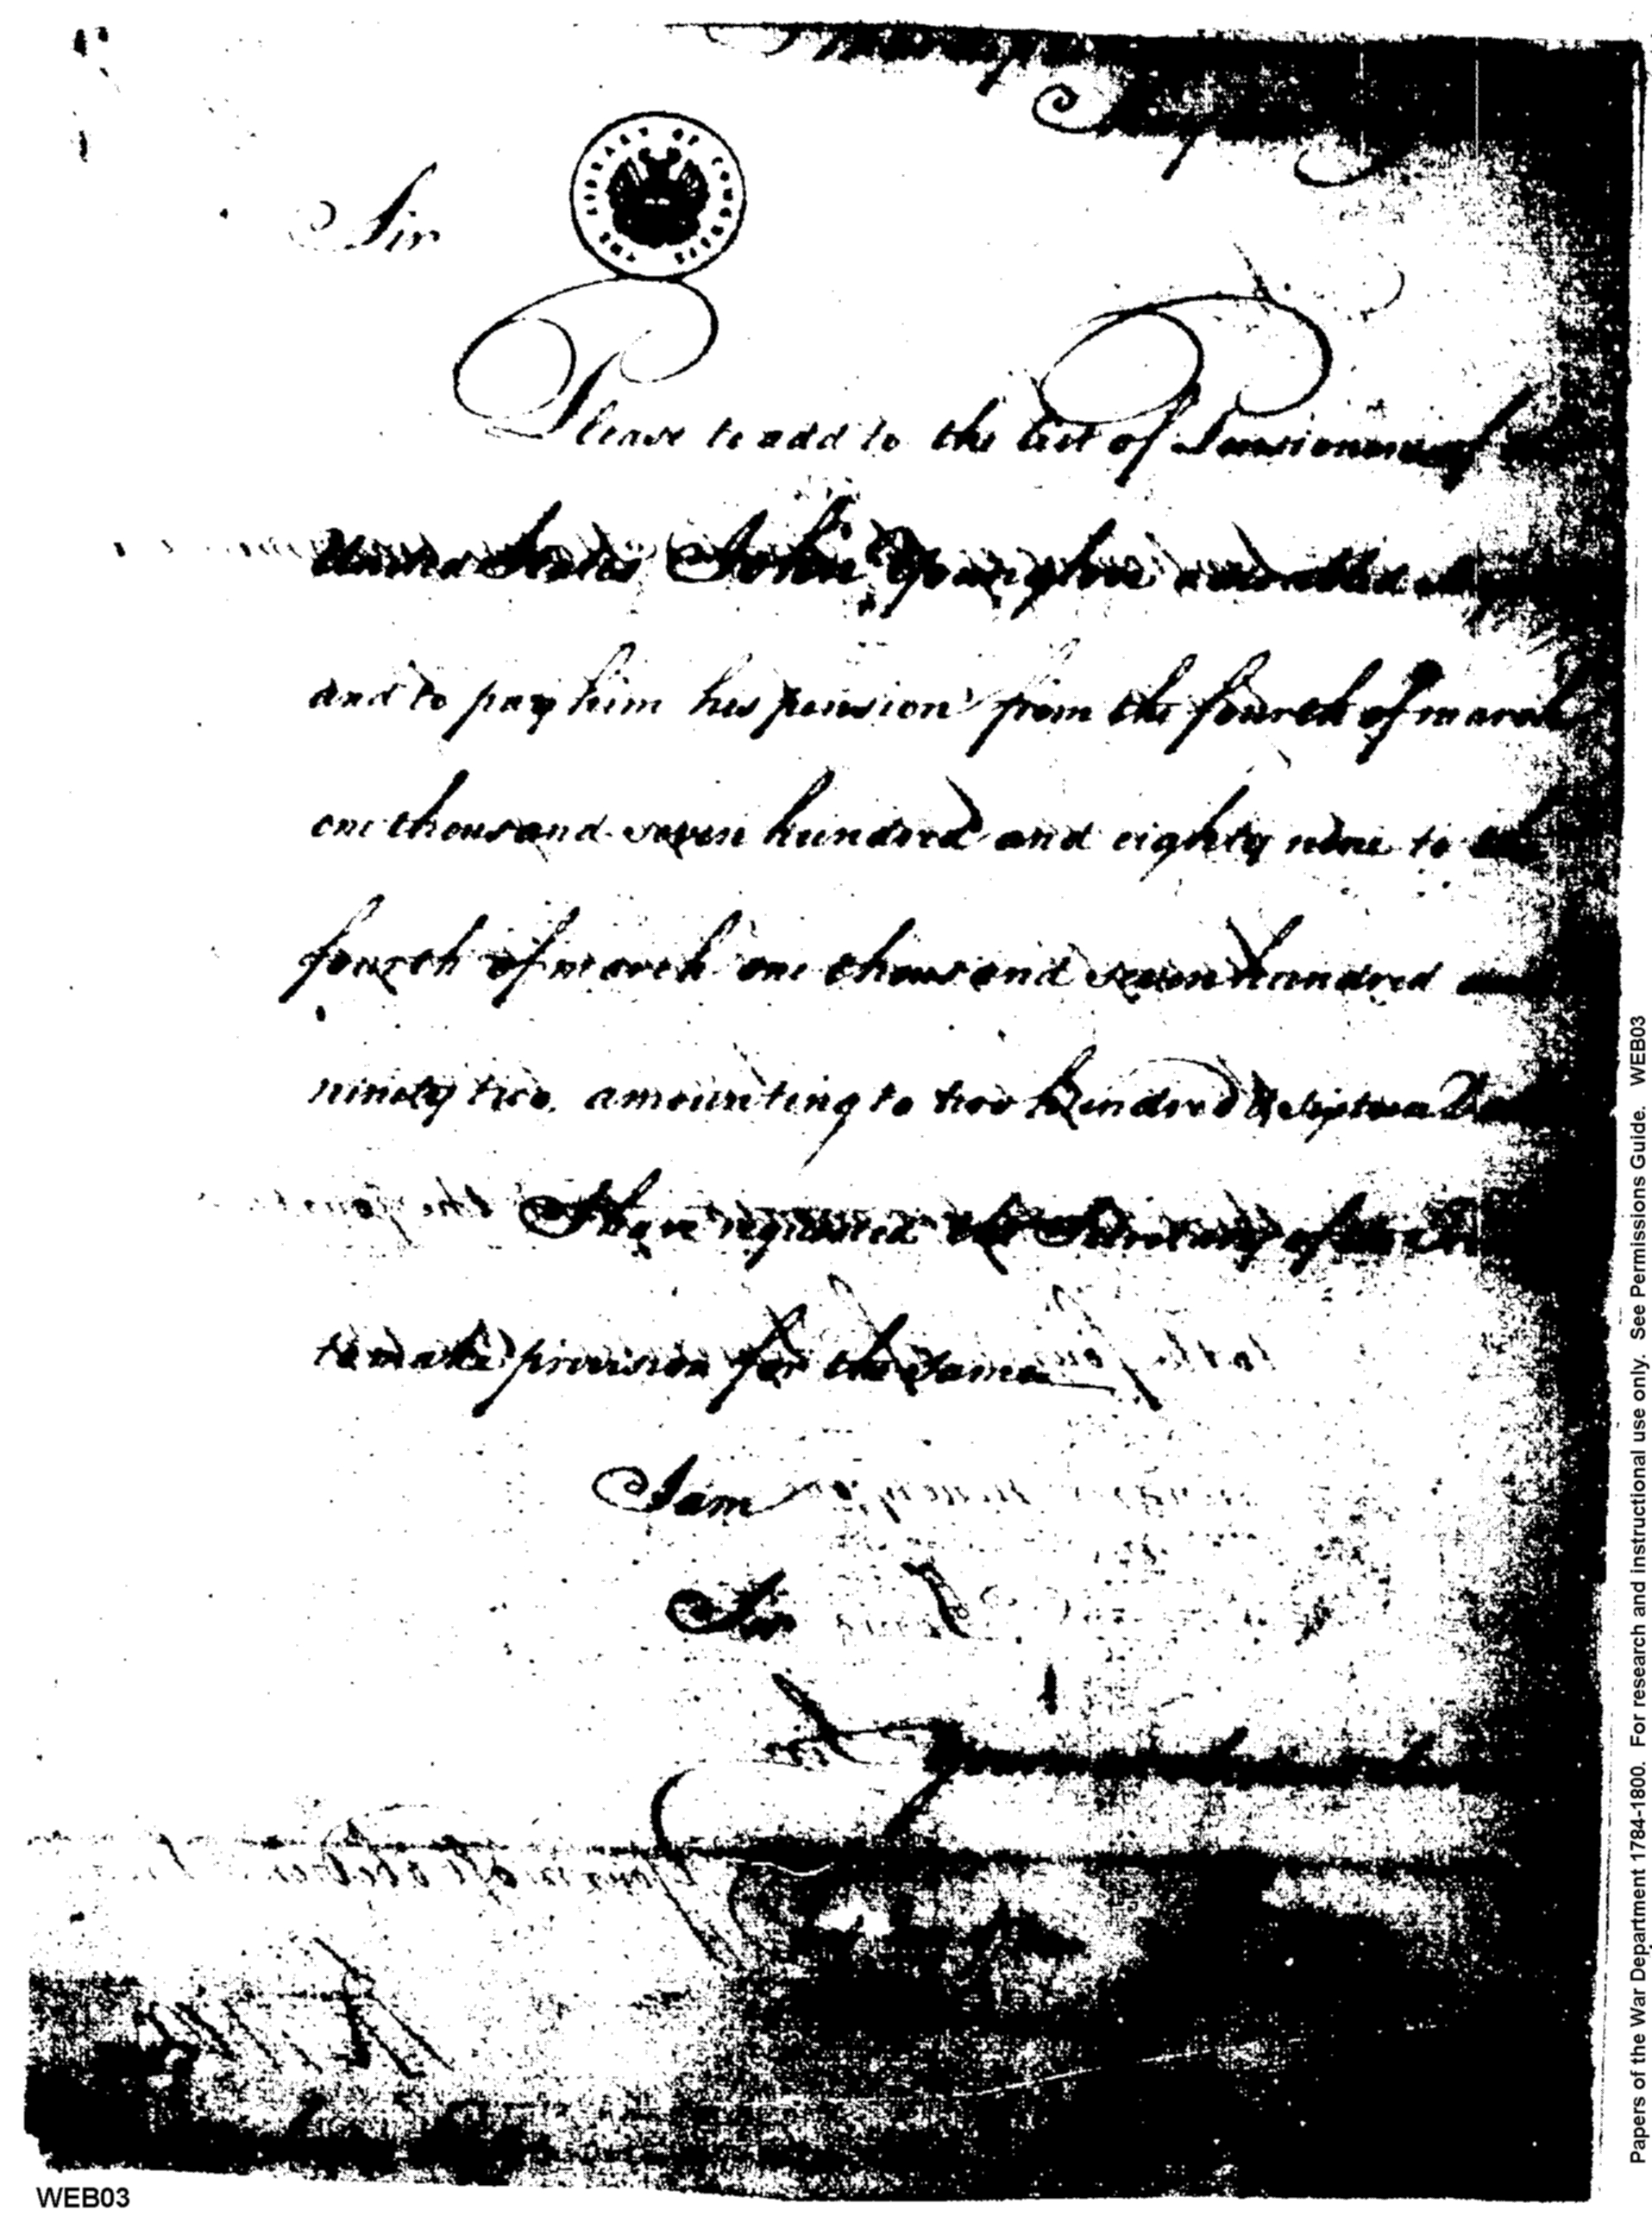 Sir
THE LIBRARY OF CONGRESS
Please to add to the list of Pensioners of
United States John Younglove a disabled
and to pay him his pension from the fourth of march
one thousand seven hundred and eighty nine to the
fourth of march one thousand seven hundred
ninety two, amounting to two hundred & sixteen
I have requested the Secretary of the
to make provision for the same
I am
Sir
WEB03
Papers of the War Department 1784-1800. For research and instructional use only. See Permissions Guide. WEB03